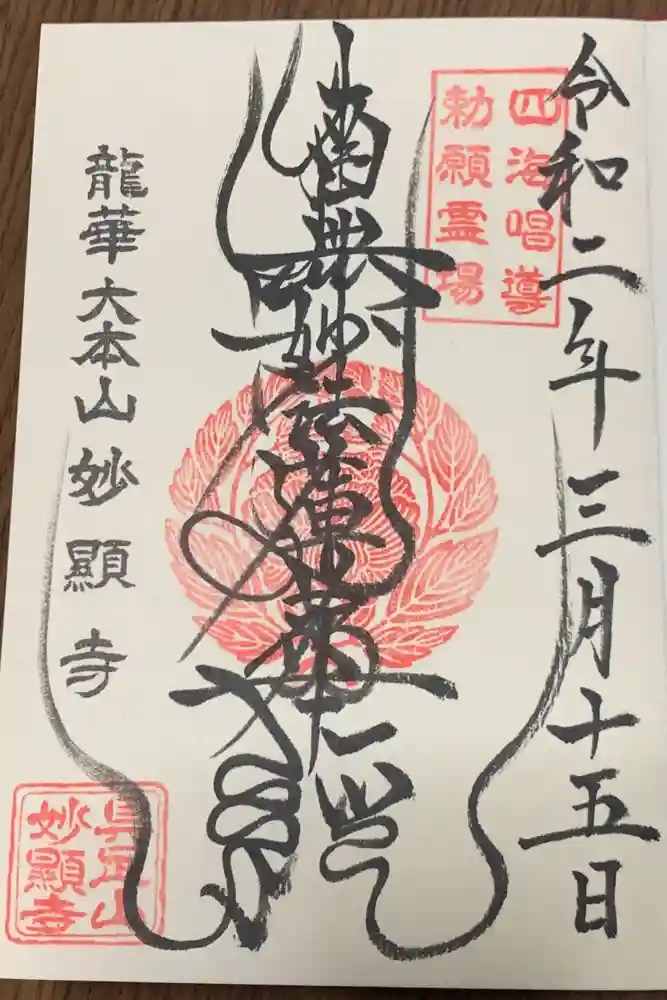 令和二年三月十五日
四海唱導
勅願霊場
南無妙法蓮華経
龍華 大本山 妙顯寺
具足山
妙顯寺